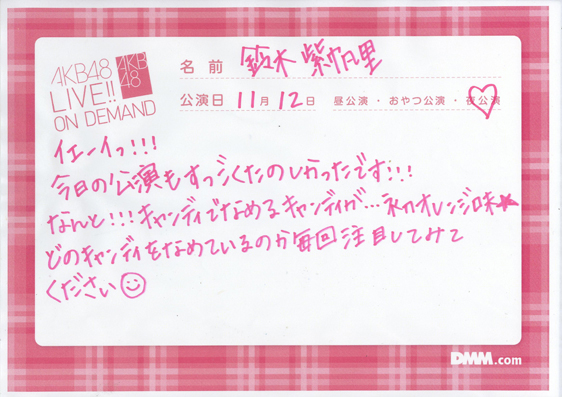 AKB48
LIVE!!
ON DEMAND
AKB
48
名前 鈴木紫帆里
公演日 11月12日 昼公演・おやつ公演・夜公演
イエーイっ!!!
今日の公演もすっごくたのしかったです!!!
なんと!!!キャンディでなめるキャンディが…初オレンジ味★
どのキャンディをなめているのか毎回注目してみて
ください☺
DMM.com